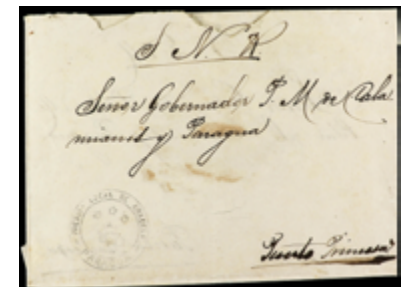 S N. R
Señor Gobernador P. M de Cala
mianes y Paragua
Puerto Princesa